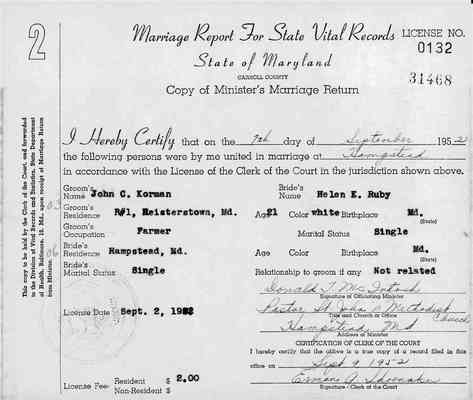 2
Marriage Report For State Vital Records
LICENSE NO.
0132
State of Maryland
CARROLL COUNTY
31468
Copy of Minister's Marriage Return
This copy to be held by the Clerk of the Court, and forwarded
to the Division of Vital Records and Statistics, State Department
of Health, Baltimore, 18, Md., upon receipt of Marriage Return
from Minister.
03
06
I Hereby Certify that on the 7th day of September 1952
the following persons were by me united in marriage at Hampstead
in accordance with the License of the Clerk of the Court in the jurisdiction shown above.
Groom's Name John C. Korman Bride's Name Helen E. Ruby
Groom's Residence R#1, Reisterstown, Md. Age 21 Color white Birthplace Md.
(State)
Groom's Occupation Farmer Marital Status Single
Bride's Residence Hampstead, Md. Age Color Birthplace Md.
(State)
Bride's Marital Status Single Relationship to groom if any Not related
Donald T. McIntosh
Signature of Officiating Minister
Pastor St. John's Methodist Church
Title and Church or Office
License Date Sept. 2, 1952
Hampstead, Md
Address of Minister
CERTIFICATION OF CLERK OF THE COURT
I hereby certify that the above is a true copy of a record filed in this
office on Sept 9 1952
License Fee: Resident $ 2.00
Non-Resident $
Signature - Clerk of the Court